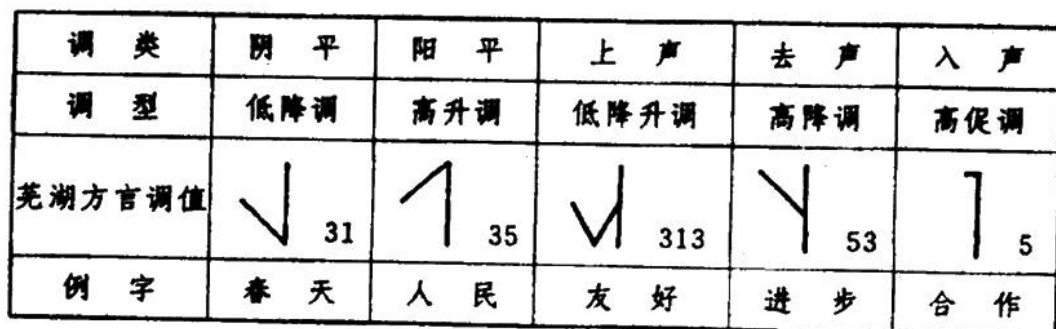 调类 阴平 阳平 上声 去声 入声
调型 低降调 高升调 低降升调 高降调 高促调
芜湖方言调值 31 35 313 53 5
例字 春天 人民 友好 进步 合作